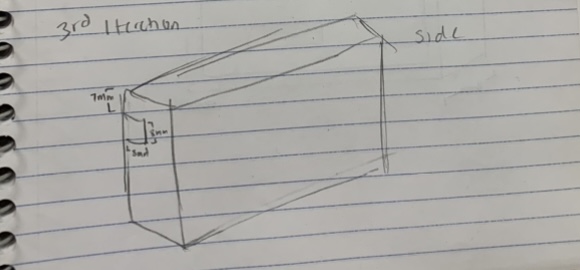 3rd Iteration
side
7mm
8mm